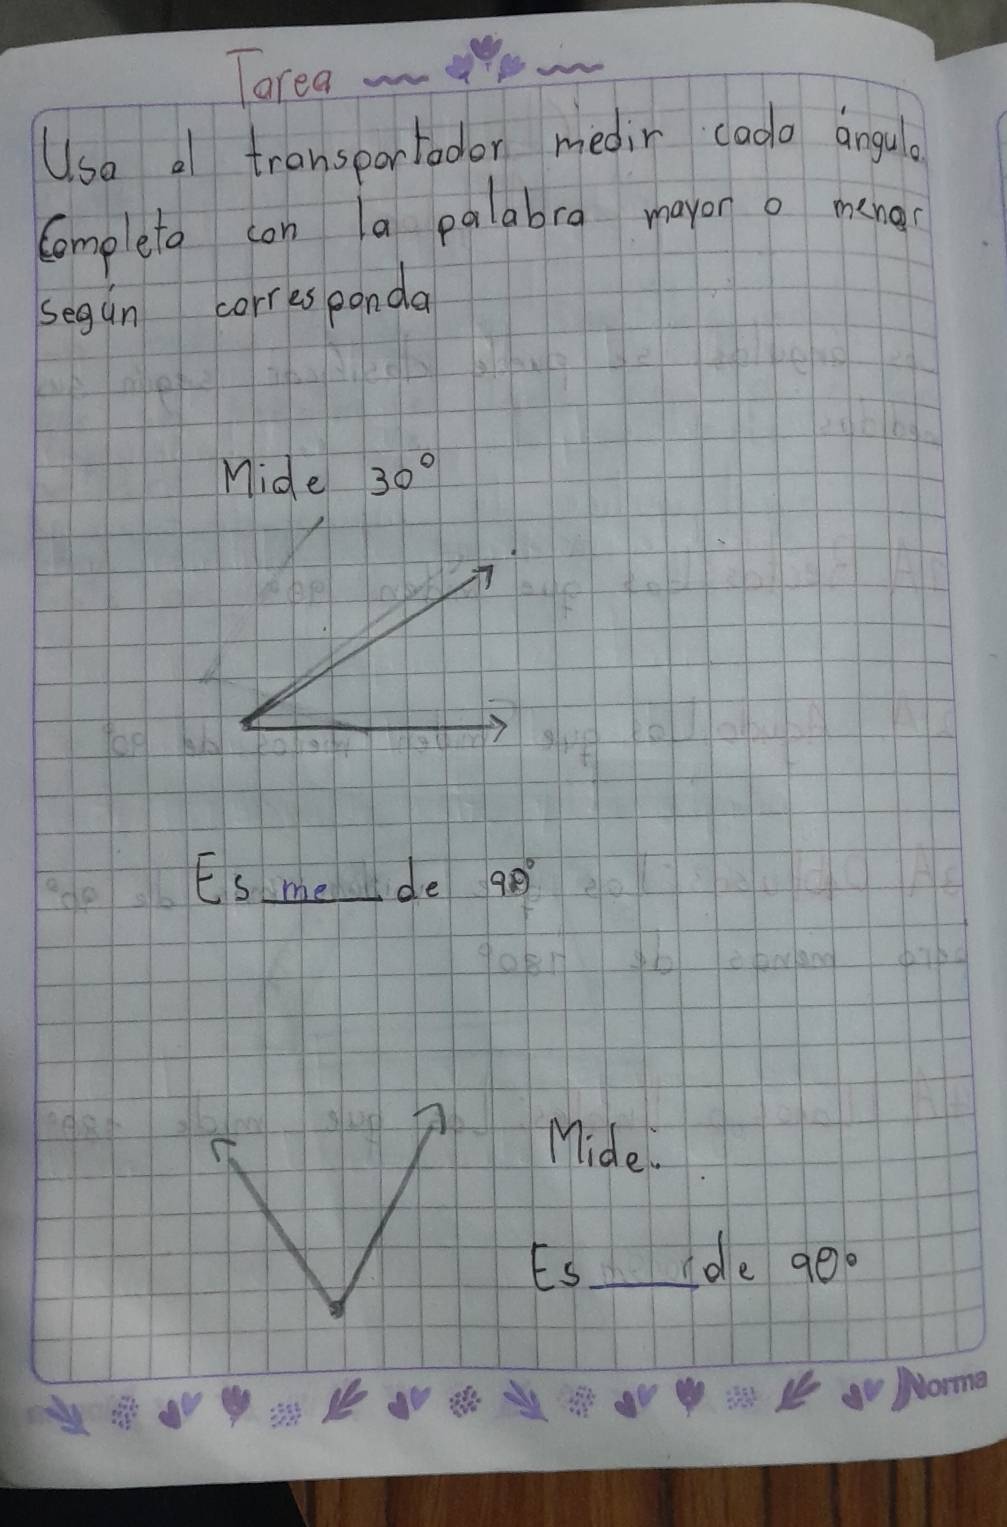 Tarea
Usa el transportador medir cada ángulo
Completo con la palabra mayor o menor
según corresponda
Mide 30°
Es me de 90°
Mide:
Es ____ de 90°
Norma